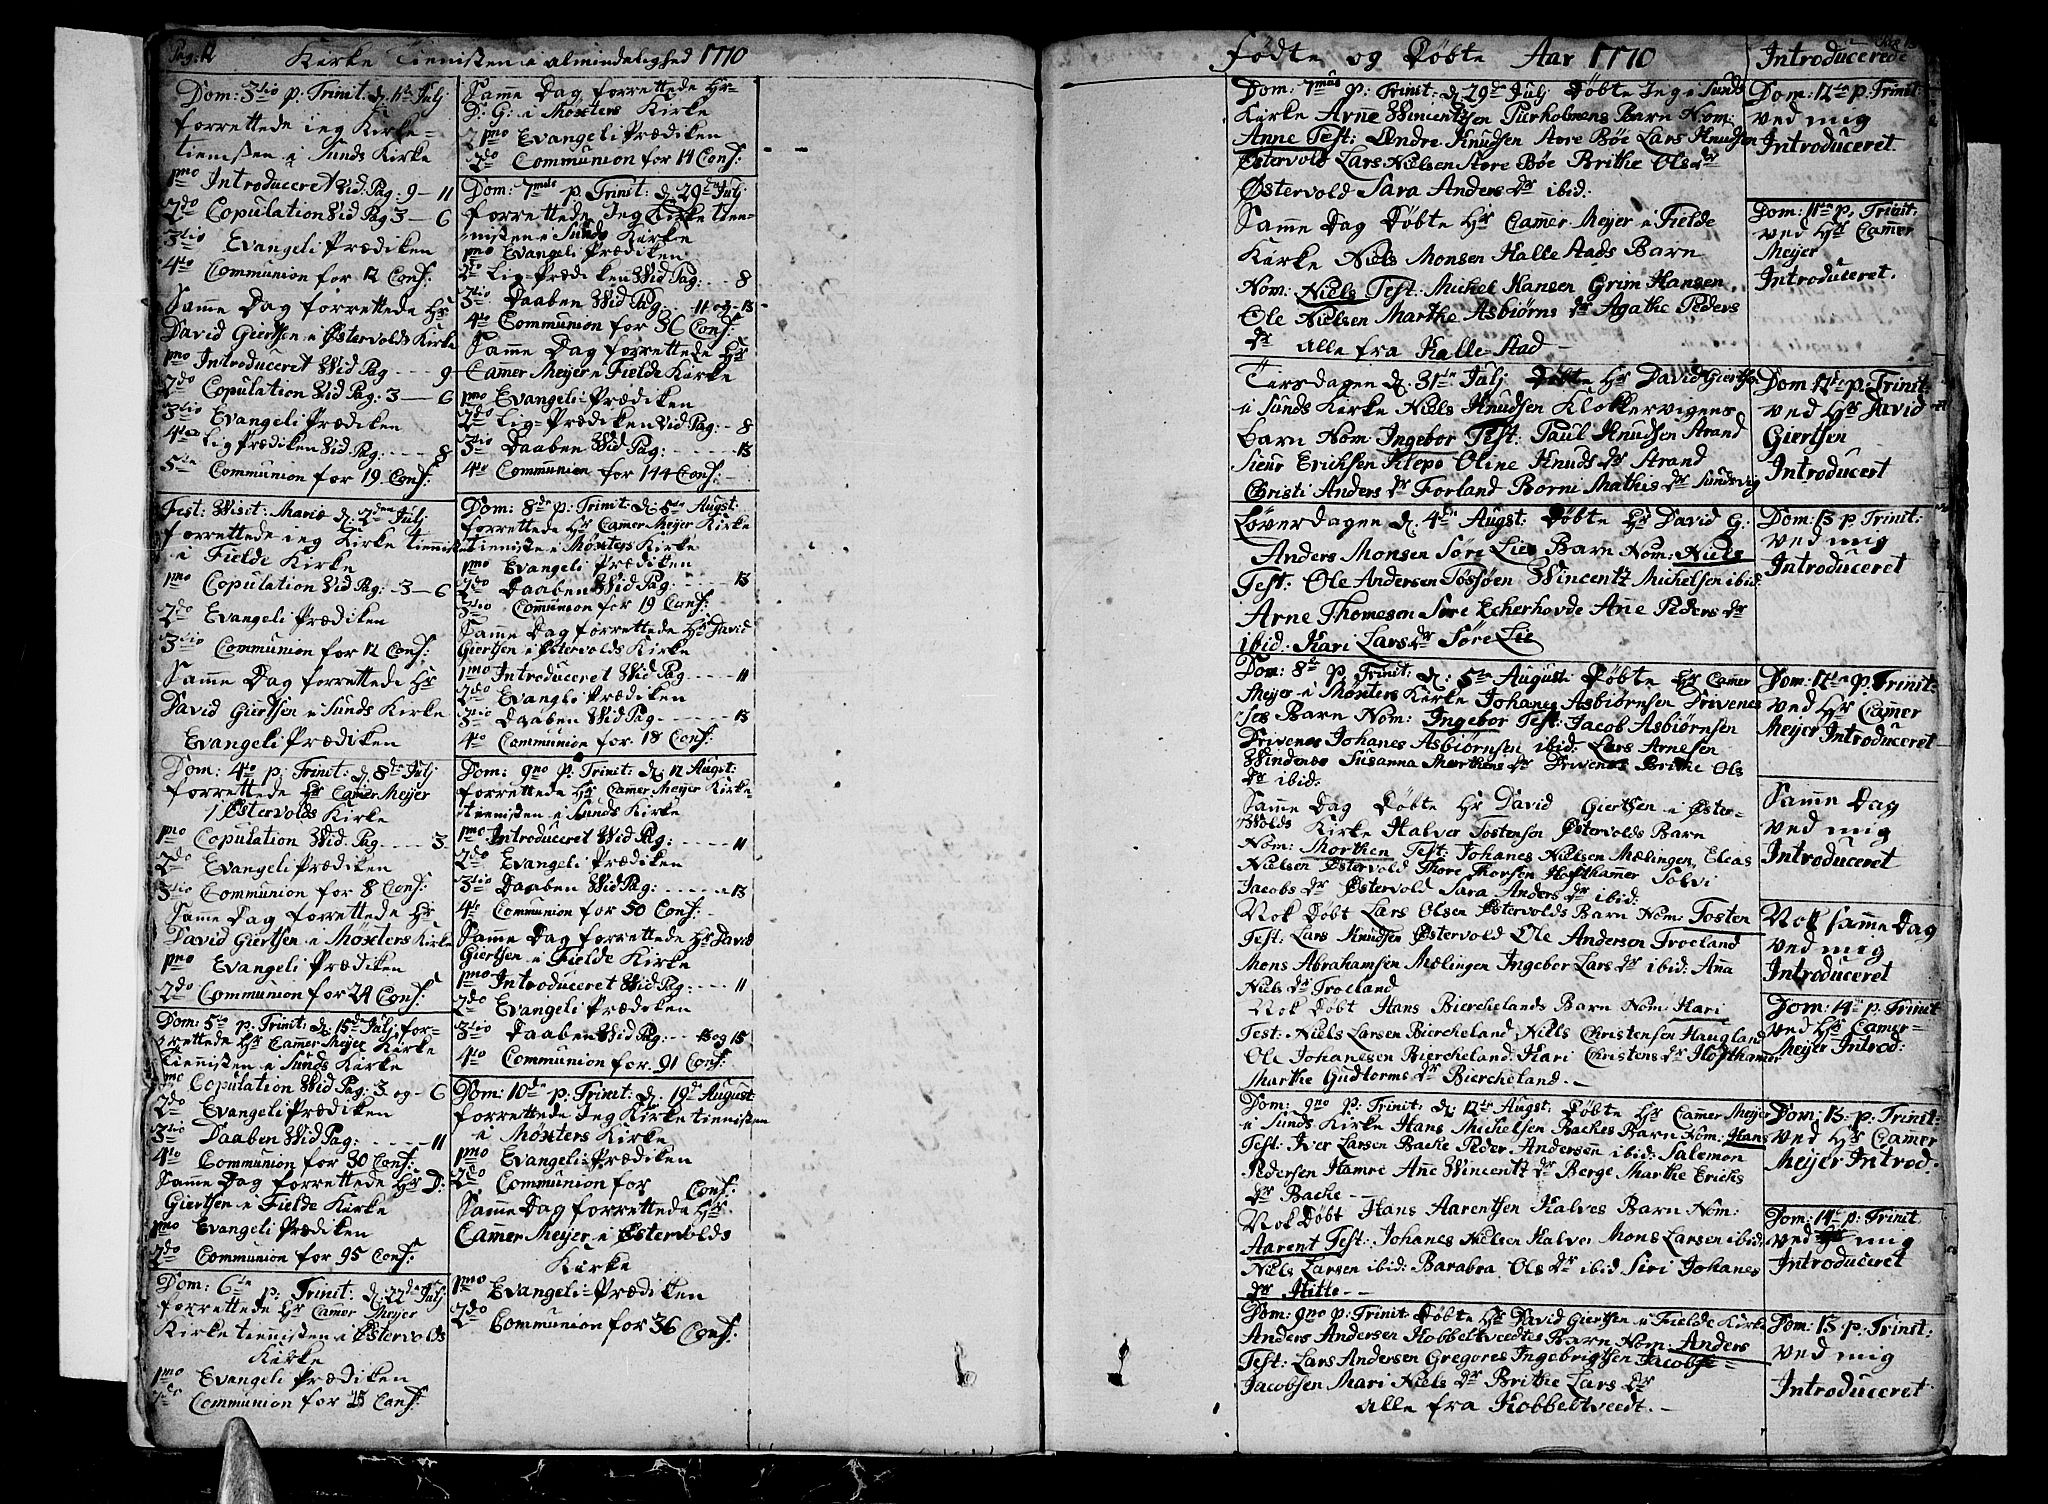 Pag: 12 Kirke Tiennisten i almindelighed 1770
Dom: 3tio p: Trinit: d. 1ste Julj
forrettede ieg Kirke-
tiennisten i Sunds Kirke
1mo Introduceret Vid Pag: 9 - 11
2do Copulation Vid Pag 3 - 6
3tio Evangeli Prædiken
4to Communion for 12 Conf:
Samme Dag forrettede Hr
David Giertsen i Østervolds Kirke
1mo Introduceret Vid Pag --- 9
2do Copulation Vid Pag. 3 - 6
3tio Evangeli Prædiken
4to Lig Prædiken Vid Pag: --- 8
5to Communion for 19 Conf:
Fest: Visit: Mariæ d. 2den Julj
forrettede ieg Kirke tienniste
i Fielde Kirke
1mo Copulation Vid Pag: - 3 - 6
2do Evangeli Prædiken
3tio Communion for 12 Conf:
Samme Dag forrettede Hr
David Giertsen i Sunds Kirke
Evangeli Prædiken
Dom: 4to p: Trinit: d. 8de Julj
forrettede Hr Camer Meijer
i Østervolds Kirke
1mo Copulation Vid Pag --- 3
2do Evangeli Prædiken
3tio Communion for 8 Conf:
Same Dag forrettede Hr
David Giertsen i Møxters Kirke
1mo Evangeli Prædiken
2do Communion for 24 Conf:
Dom: 5to p: Trinit: d. 15de Julj for-
rettede Hr Camer Meijer Kirke
Tiennisten i Sunds Kirke
1mo Copulation Vid Pag: 3 og - 6
2do Evangeli Prædiken
3tio Daaben Vid Pag: --- 11
4to Communion for 30 Conf:
Samme Dag forrettede Hr D:
Giertsen i Fielde Kirke
1mo Evangeli Prædiken
2do Communion for 95 Conf:
Dom: 6te p: Trinit: d. 22de Julj
forrettede Hr Camer Meijer
Kirke tiennisten i Østervolds
Kirke
1mo Evangeli Prædiken
2do Communion for 25 Conf:
Samme Dag forrettede Hr
D: G: i Møxters Kirke
1mo Evangeli Prædiken
2do Communion for 14 Conf:
Dom: 7mus p: Trinit: d. 29de Julj
forrettede Jeg Kirke tien-
nisten i Sunds Kirke
1mo Evangeli Prædiken
2do Lig-Prædiken Vid Pag: -- 8
3tio Daaben Vid Pag: -- 11 og - 13
4to Communion for 36 Conf:
Samme Dag forrettede Hr
Camer Meijer i Fielde Kirke
1mo Evangeli-Prædiken
2do Lig-Prædiken Vid Pag: - 8
3tio Daaben Vid Pag: --- 13
4to Communion for 144 Conf: -
Dom: 8de p: Trinit: d. 5te Augst:
forrettede Hr Camer Meijer Kirke
tienniste i Møxters Kirke
1mo Evangeli Prædiken
2do Daaben Vid Pag: --- 13
3tio Communion for 19 Conf:
Samme Dag forrettede Hr David
Giertsen i Østervolds Kirke
1mo Introduceret Vid Pag --- 11
2do Evangli Prædiken
3tio Daaben Vid Pag --- 13
4to Communion for 18 Conf:
Dom: 9no p: Trinit: d. 12 Augst:
forrettede Hr Camer Meijer Kirke-
tiennisten i Sunds Kirke
1mo Introduceret Vid Pag: --- 11
2do Evangeli Prædiken
3tio Daaben Vid Pag: --- 13
4to Communion for 50 Conf: -
Samme Dag forrettede Hr David
Giertsen i Fielde Kirke
1mo Introduceret Vid Pag: --- 11
2do Evangeli Prædeken
3tio Daaben Vid Pag: -- 13 og 15
4to Communion for 91 Conf:
Dom: 10de p: Trinit: d. 19de August
forrettede Jeg Kirke tiennisten
i Møxters Kirke
1mo Evangeli-Prædiken
2do Communion for Conf:
Samme Dag forrettede Hr
Camer Meijer i Østervolds
Kirke
1mo Evangeli-Prædiken
2do Communion for 36 Conf:
Fødte og Døbte Aar 1770 Introducerede
Dom: 7mus p: Trinit: d. 29de Julj Døbte Jeg i Sunds
Kirke Arne Vincentzen Pierholmens Barn Nom:
Anne Test: Andre Knudsen Store Bøe Lars Knudsen
Østervold Lars Nielsen Store Bøe Brithe Ols dr
Østervold Sara Anders dr ibid:
Samme Dag Døbte Hr Camer Meijer i Fielde
Kirke Niels Monsen Kalle Stads Barn
Nom: Niels Test: Michel Hansen Grim Hansen
Ole Nielsen Marthe Asbiørns dr Agathe Peders
dr alle fra Kalle-Stad -
Tirsdagen d. 31te Julj Døbte Hr David Giertsen
i Sunds Kirke Niels Knudsen Klokkervigens
Barn Nom: Ingebor Test: Paul Knudsen Strand
Sieur Ericksen Klepo Oline Knuds dr Strand
Christi Anders dr Forland Borni Mathis dr Sundsvig
Løverdagen d. 4de Augst: Døbte Hr David G:
Anders Monsen Søre Lies Barn Nom: Niels
Test: Ole Andersen Tøssøen Vincentz Michelsen ibid:
Arne Thomesen Søre Echerhovde Ane Peders dr
ibid: Kari Lars dr Søre Lie
Dom: 8de p: Trinit: d. 5te August Døbte Hr Camer
Meijer i Møxters Kirke Johanes Asbiørnsen Drivenes
Barn Nom: Ingebor Test: Jacob Asbiørnsen
Drivenes Johanes Asbiørnsen ibid: Lars Arnesen
Vindenes Susanna Morthens dr Drivenes Brithe Ols
dr ibid:
Samme Dag Døbte Hr David Giertsen i Øster-
Volds Kirke Halver Tostensen Østervolds Barn
Nom: Morthen Test: Johanes Nielsen Mælingen, Elias
Nielsen Østervold Thore Thorsen Hofthamer Solvi
Jacobs dr Østervold Sara Anders dr ibid:
Nok Døbt Lars Olsen Østervolds Barn Nom: Tosten
Test: Lars Knudsen Østervold Ole Andersen Troeland
Mons Abrahamsen Mælingen Ingebor Lars dr ibid: Ana
Niels dr Troeland
Nok Døbt Hans Bierchelands Barn Nom: Kari
Test: Niels Larsen Biercheland Niels Christensen Haugland
Ole Johanesen Biercheland: Kari Christens dr Hofthamer
Marthe Gudtorms dr Biercheland. -
Dom: 9no p: Trinit: d. 12te Augst: Døbte Hr Camer Meijer
i Sunds Kirke Hans Michelsen Baches Barn Nom: Hans
Test: Iver Larsen Bache Peder Andersenn ibid: Salemon
Pedersen Hamre Ane Vincentz dr Berge Marthe Erichs
dr Bache -
Nok Døbt Hans Aarentsen Kalves Barn Nom:
Aarent Test: Johanes Nielsen Kalver Mons Larsen ibid:
Niels Larsen ibid: Barabra Ols dr ibid Siri Johanes
dr Hitte -
Dom: 9no p: Trinit Døbte Hr David Giertsen i Fielde Kirke
Anders Andersen Kobbeltveedtes Barn Nom: Anders
Test: Lars Andersen Gregores Ingebrigtsen
Jacobsen Mari Niels dr Brithe Lars dr
alle fra Kobbeltveedt. -
Dom: 12te p: Trinit:
ved mig
Introduceret
Dom: 11te p. Trinit:
ved Hr Camer
Meijer
Introduceret.
Dom 12te p: Trinit:
ved Hr David
Giertsen
Introducert
Dom: 13 p: Trinit:
ved mig
Introduceret
Dom: p: Trinit:
ved Hr Camer
Meijer Introduceret
Samme Dag
ved mig
Introduceret
Nok samme Dag
ved mig
Introduceret
Dom: 14de p: Trinit
ved Hr Camer-
Meijer Introd:
Dom: 13: p: Trinit:
ved Hr Camer
Meijer Introd:
Dom: 14de p: Trinit
ved mig
Introduceret
Dom: 13 p: Trinit:
ved mig
Introduceret